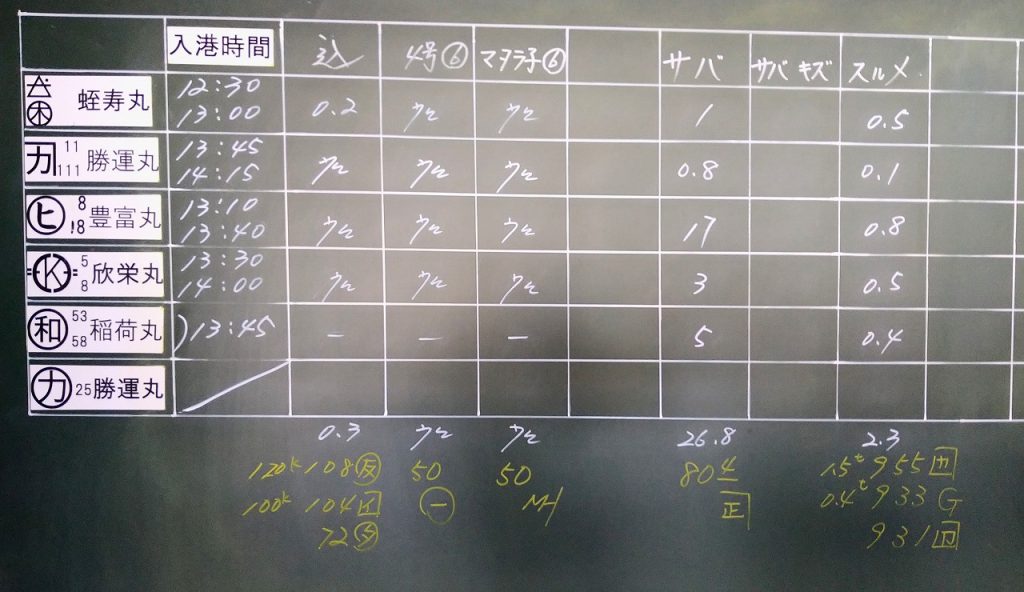 入港時間 込 4号⑥ マダラ子⑥ サバ サバキズ スルメ
蛭寿丸 12:30 13:00 0.2 ウセ ウセ 1 0.5
カ 11 111 勝運丸 13:45 14:15 ウセ ウセ ウセ 0.8 0.1
ヒ 8 18 豊富丸 13:10 13:40 ウセ ウセ ウセ 17 0.8
K 5 8 欣栄丸 13:30 14:00 ウセ ウセ ウセ 3 0.5
和 53 58 稲荷丸 )13:45 — — — 5 0.4
カ 25 勝運丸
0.3 ウセ ウセ 26.8 2.3
120K 108 反 50 50 80 1.5t 955 カ
100K 104 ㊀ 正 0.4t 933 G
72 931